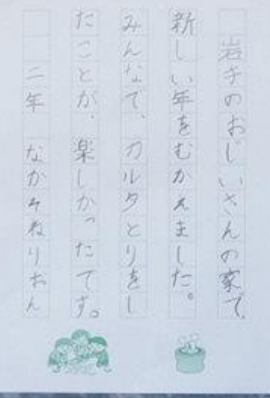 岩手のおじいさんの家で、
新しい年をむかえました。
みんなで、カルタとりをし
たことが、楽しかったです。
二年　なかそねりおん